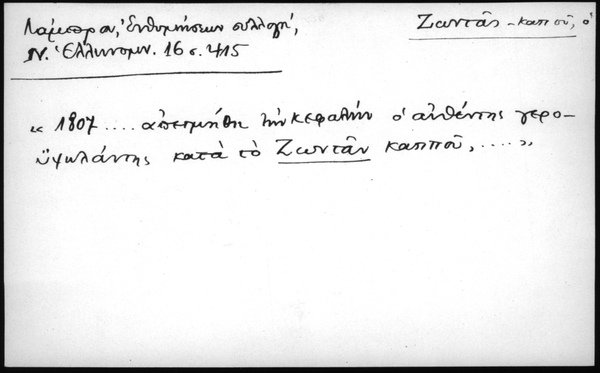 Λάμπρου, Ἐνθυμήσεων συλλογή,
Ν. Ἑλληνομν. 16 σ. 415
Ζωντᾶν - καποῦ, ὁ
« 1807 .... ἀπετμήθη τὴν κεφαλὴν ὁ αὐθέντης γερο-
ϋψηλάντης κατὰ τὸ Ζωντᾶν καπποῦ, ..... »